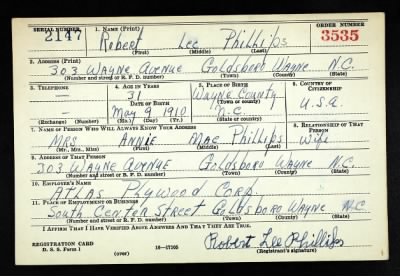 SERIAL NUMBER 1. NAME (Print) ORDER NUMBER
2147 Robert Lee Phillips 3535
(First) (Middle) (Last)
2. ADDRESS (Print)
303 WAYNE AVENUE GOLDSBORO WAYNE N.C.
(Number and street or R. F. D. number) (Town) (County) (State)
3. TELEPHONE 4. AGE IN YEARS 5. PLACE OF BIRTH 6. COUNTRY OF CITIZENSHIP
— 31 WAYNE COUNTY
DATE OF BIRTH (Town or county) U.S.A.
May 9 1910 N.C.
(Exchange) (Number) (Mo.) (Day) (Yr.) (State or country)
7. NAME OF PERSON WHO WILL ALWAYS KNOW YOUR ADDRESS 8. RELATIONSHIP OF THAT PERSON
MRS ANNIE MAE Phillips Wife
(Mr., Mrs., Miss) (First) (Middle) (Last)
9. ADDRESS OF THAT PERSON
303 WAYNE AVENUE GOLDSBORO WAYNE N.C.
(Number and street or R. F. D. number) (Town) (County) (State)
10. EMPLOYER'S NAME
ATLAS Plywood CORP.
11. PLACE OF EMPLOYMENT OR BUSINESS
South CENTER STREET GOLDSBORO WAYNE N.C.
(Number and street or R. F. D. number) (Town) (County) (State)
I AFFIRM THAT I HAVE VERIFIED ABOVE ANSWERS AND THAT THEY ARE TRUE.
Robert Lee Phillips
REGISTRATION CARD
D. S. S. Form 1 (over) 16—17105 (Registrant's signature)